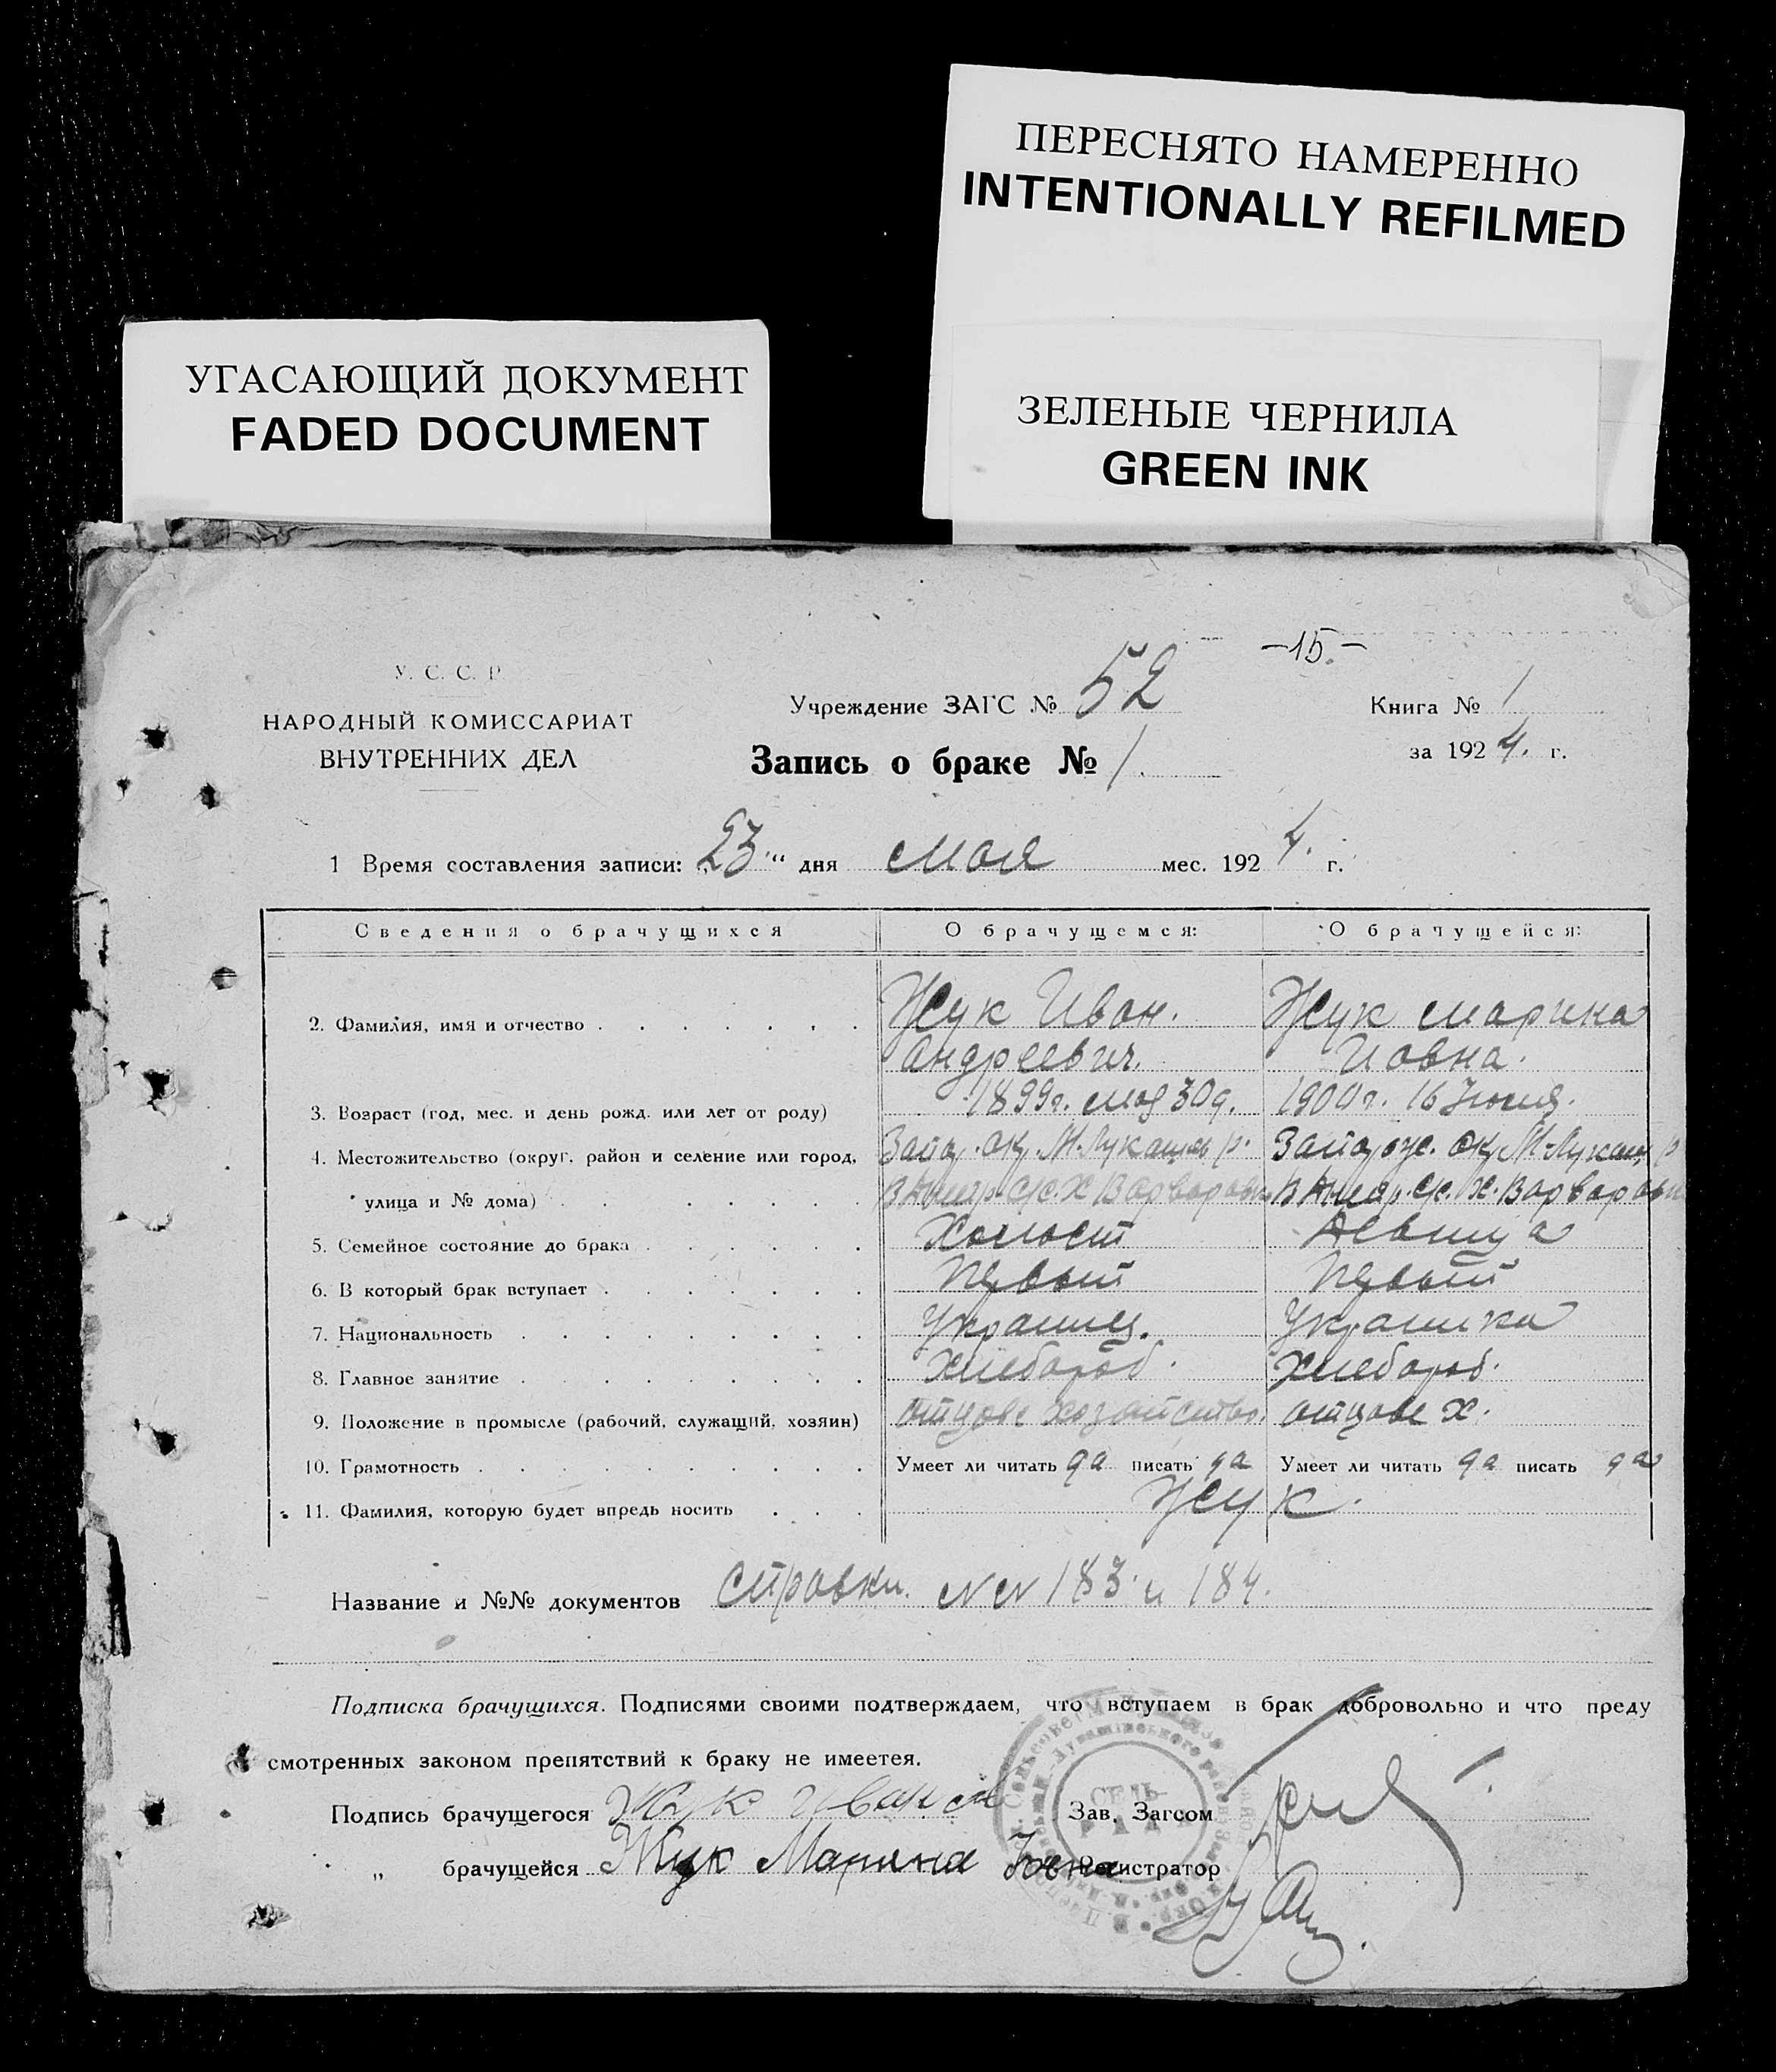 ПЕРЕСНЯТО НАМЕРЕННО
INTENTIONALLY REFILMED
УГАСАЮЩИЙ ДОКУМЕНТ
FADED DOCUMENT
ЗЕЛЕНЫЕ ЧЕРНИЛА
GREEN INK
-15.-
У. С. С. Р
НАРОДНЫЙ КОМИССАРИАТ
ВНУТРЕННИХ ДЕЛ
Учреждение ЗАГС № 52
Книга № 1
за 1924. г.
Запись о браке № 1.
1 Время составления записи: „23“ дня мая мес. 1924. г.
Сведения о брачущихся О брачущемся: О брачущейся:
2. Фамилия, имя и отчество . . . . . . . Жук Иван. Жук Марина
Андреевич. Иовна.
3. Возраст (год, мес. и день рожд. или лет от роду) 1899г. мая 30д. 1900г. 16 Июня.
4. Местожительство (округ, район и селение или город, Запор. ок. М-Лукашев р. Запорож. ок. М-Лукаш р
улица и № дома) . . . . . . . Х Варваровк Х. Варваровк
5. Семейное состояние до брака . . . . . . Холост Девица
6. В который брак вступает . . . . . . . Первый Первый
7. Национальность . . . . . . . . Украинец. Украинка
8. Главное занятие . . . . . . . . Хлебороб. Хлебороб.
9. Положение в промысле (рабочий, служащий, хозяин) отцове хозяйство. отцове х.
10. Грамотность . . . . . . . . . Умеет ли читать да писать да Умеет ли читать да писать да
11. Фамилия, которую будет впредь носить . . . Жук.
Название и №№ документов Справки. №№ 183 и 184.
Подписка брачущихся. Подписями своими подтверждаем, что вступаем в брак добровольно и что преду
смотренных законом препятствий к браку не имеетея.
Подпись брачущегося Жук Иван Зав. Загсом
„ брачущейся Жук Марина Регистратор
СЕЛЬ-
РАДА